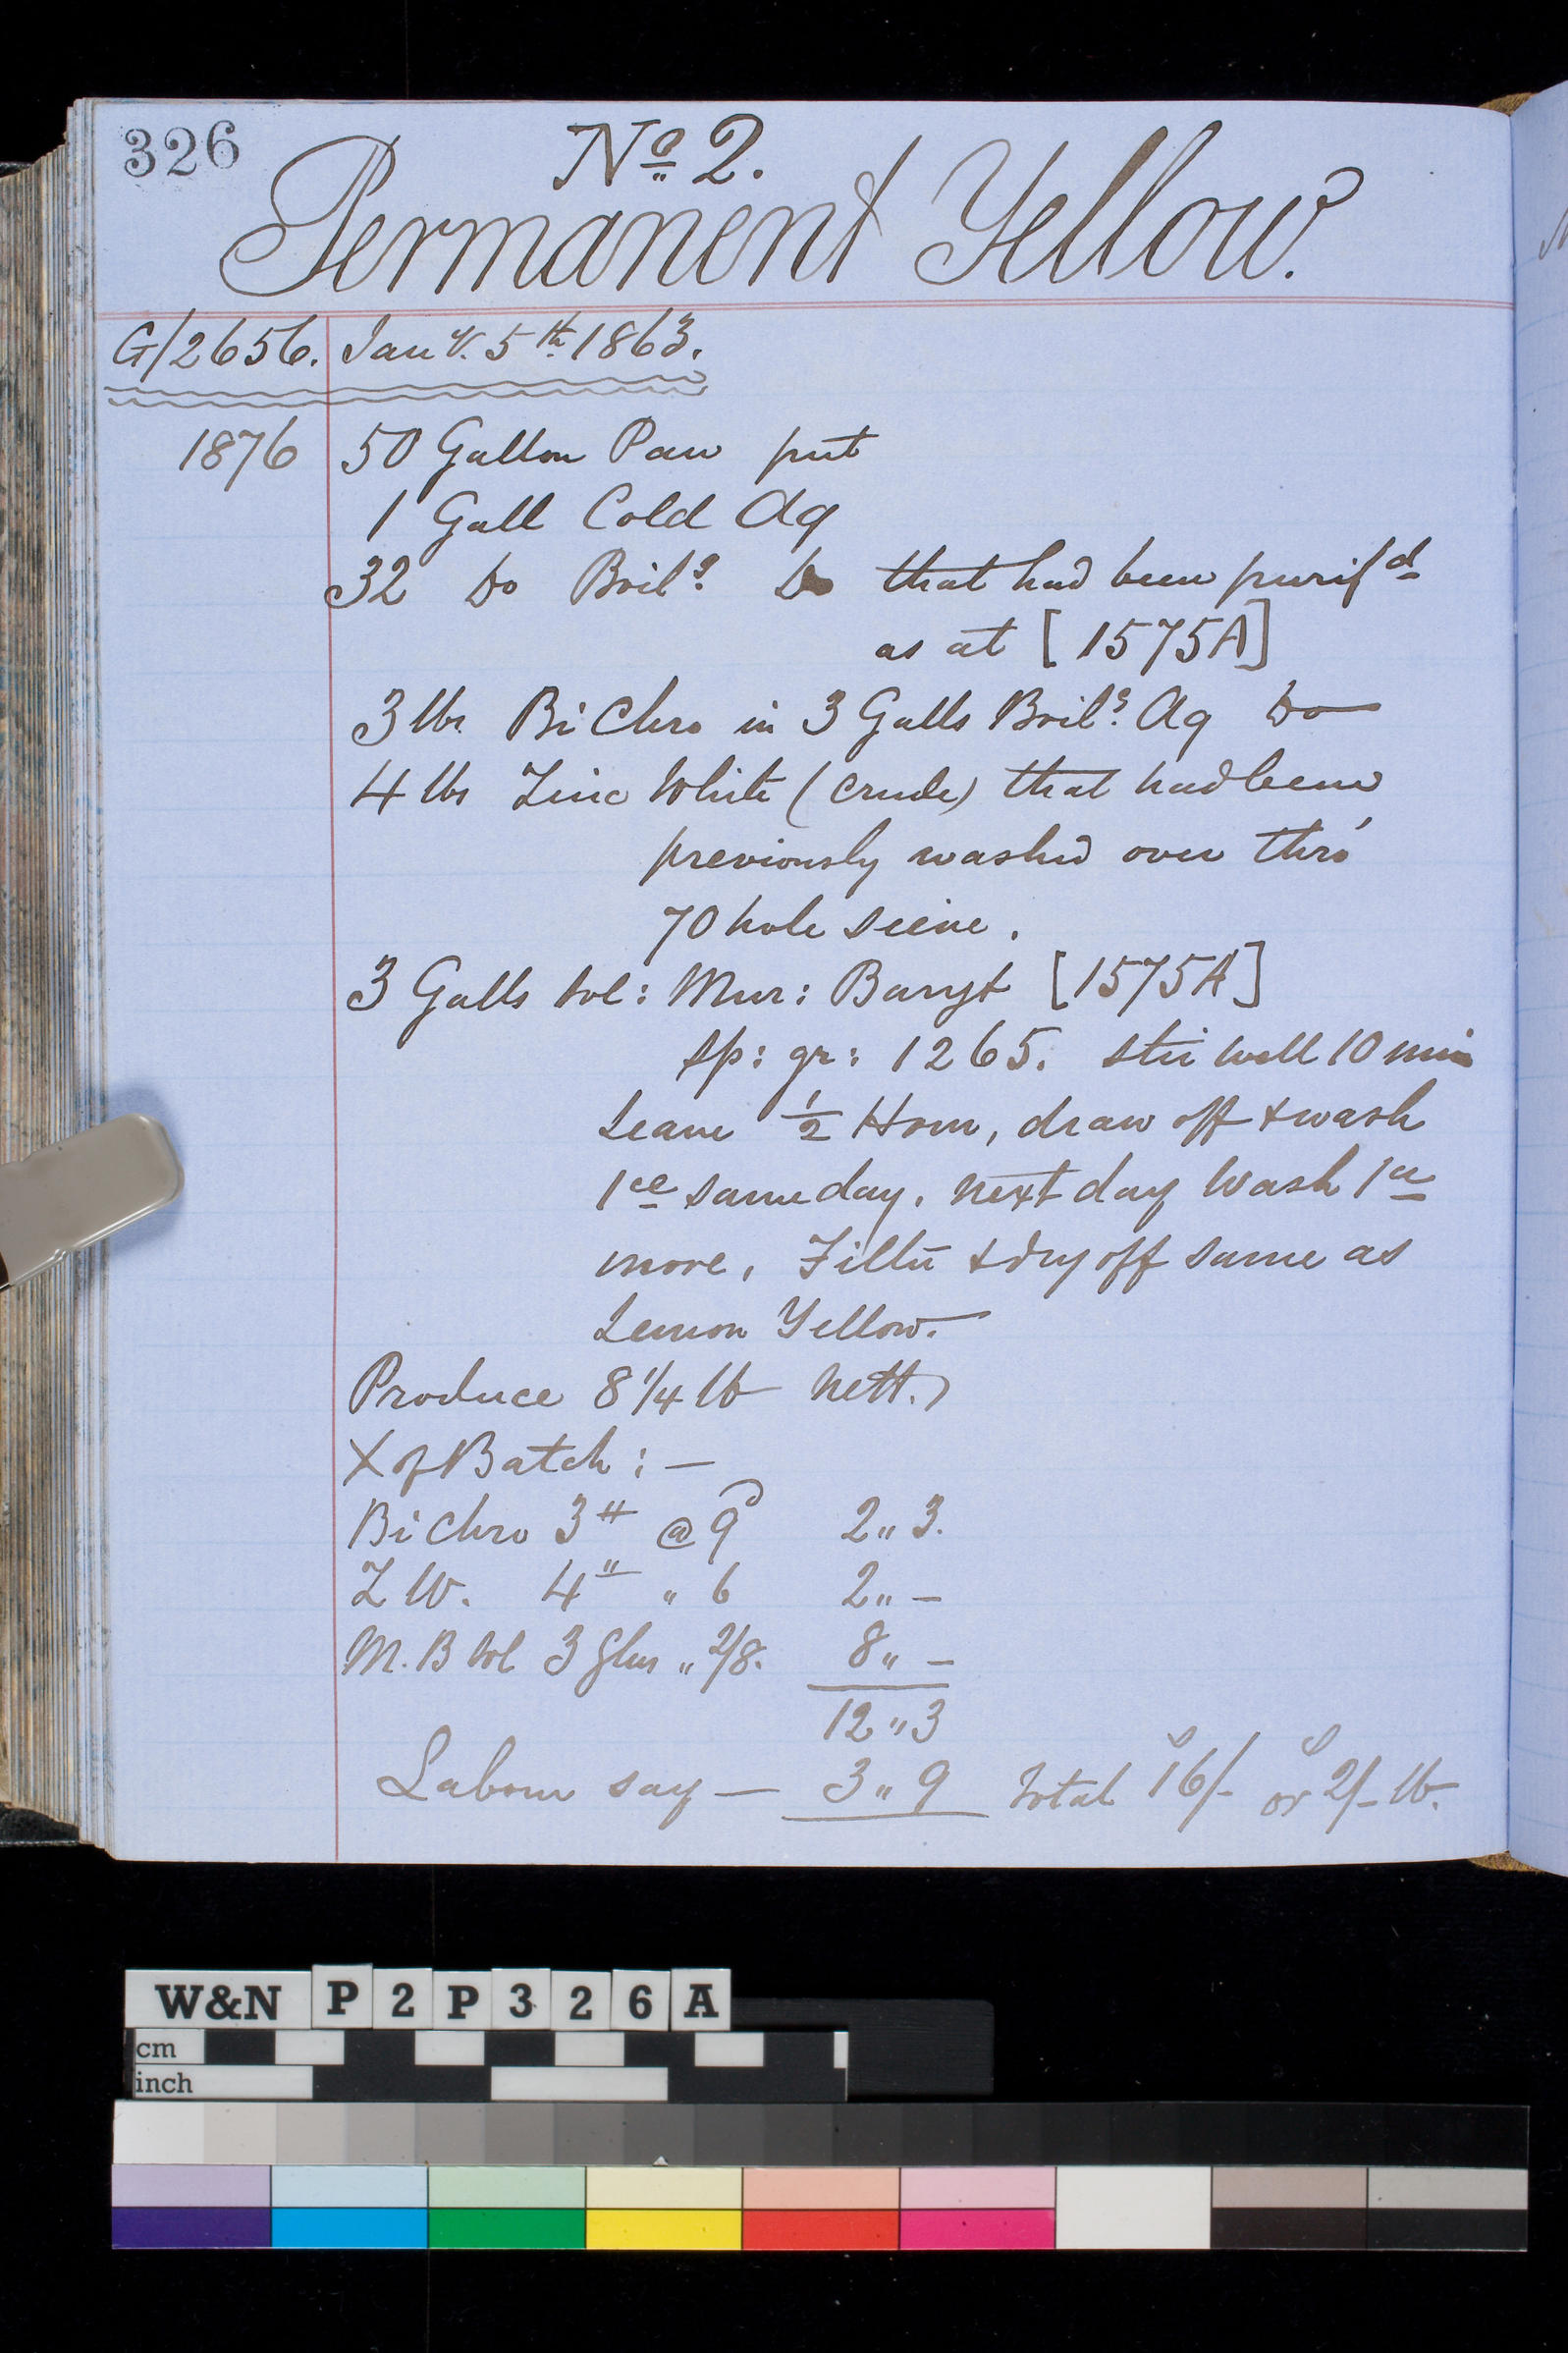 326
No 2.
Permanent Yellow.
G/2656. Jany. 5th. 1863.
1876 50 Gallon Pan put
1 Gall Cold Aq
32 Do Boilg Do that had been purifd
as at [1575A]
3 lbs BiChro in 3 Galls Boilg Aq Do
4 lbs Zinc White (crude) that had been
previously washed over thro'
70 hole seive.
3 Galls Sol: Mur: Baryt [1575A]
Sp: gr: 1265. Stir well 10 min
Leave 1/2 Hour, draw off & wash
1ce same day. next day Wash 1ce
more, Filter & dry off same as
Lemon Yellow.
Produce 8 1/4 lb nett.
X of Batch: —
Bi Chro 3# @ 9d 2" 3.
Z W. 4" " 6 2" —
M. B Sol 3 Glns " 2/8. 8" —
12" 3
Labour say — 3" 9 Total 16/- or 2/- lb.
W&N P2P326A
cm
inch